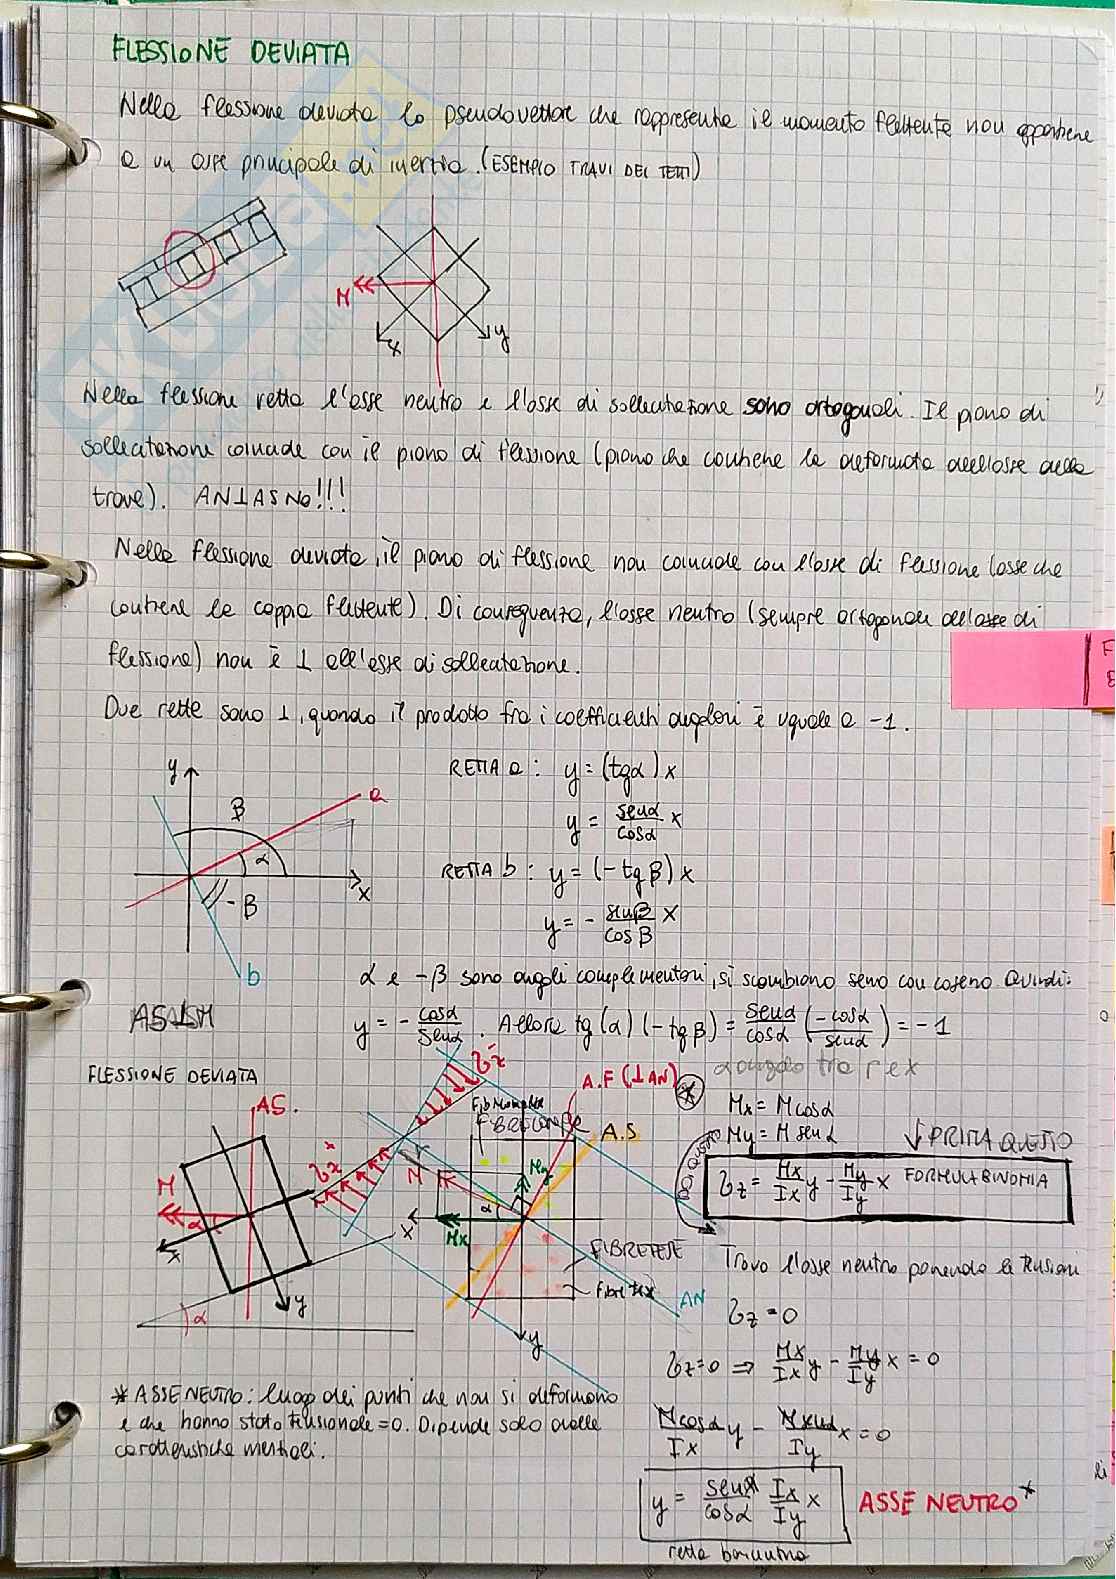 FLESSIONE DEVIATA
Nella flessione deviata lo pseudovettore che rappresenta il momento flettente non appartiene
a un asse principale di inerzia. (ESEMPIO TRAVI DEI TETTI)
M
x
y
Nella flessione retta l'asse neutro e l'asse di sollecitazione sono ortogonali. Il piano di
sollecitazioni coincide con il piano di flessione (piano che contiene la deformata dell'asse della
trave). AN⊥AS No!!!
Nella flessione deviata, il piano di flessione non coincide con l'asse di flessione (asse che
contiene la coppia flettente). Di conseguenza, l'asse neutro (sempre ortogonale all'asse di
flessione) non è ⊥ all'asse di sollecitazione.
Due rette sono ⊥, quando il prodotto fra i coefficienti angolari è uguale a -1.
y
β
a
α
x
-β
b
RETTA a: y = (tgα) x
y = senα/cosα x
RETTA b: y = (-tgβ) x
y = - senβ/cosβ x
α e -β sono angoli complementari, si scambiono seno con coseno. Quindi:
AS⊥M
y = - cosα/senα . Allora tg(α) (-tgβ) = senα/cosα (-cosα/senα) = -1
α angolo tra r e x
FLESSIONE DEVIATA
AS.
M
α
x
y
α
Ϭz⁺
Ϭz⁻
A.F (⊥AN)
A.S
FIBRECOMPRE
M
My
α
Mx
x
FIBRETESE
AN
y
Mx = M cosα
My = M senα
↓ PRIMA QUESTO
Ϭz = Mx/Ix y - My/Iy x FORMULA BINOMIA
Trovo l'asse neutro ponendo le tensioni
Ϭz = 0
Ϭz=0 ⇒ Mx/Ix y - My/Iy x = 0
Mcosα/Ix y - Msenα/Iy x = 0
y = senα/cosα Ix/Iy x
ASSE NEUTRO *
* ASSE NEUTRO: luogo dei punti che non si deformono
e che hanno stato tensionale = 0. Dipende solo dalle
caratteristiche inerziali.